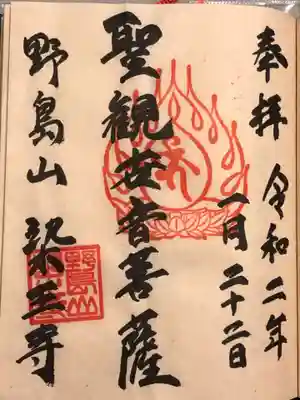 奉拝 令和二年
一月二十二日
聖観世音菩薩
野島山 染王寺